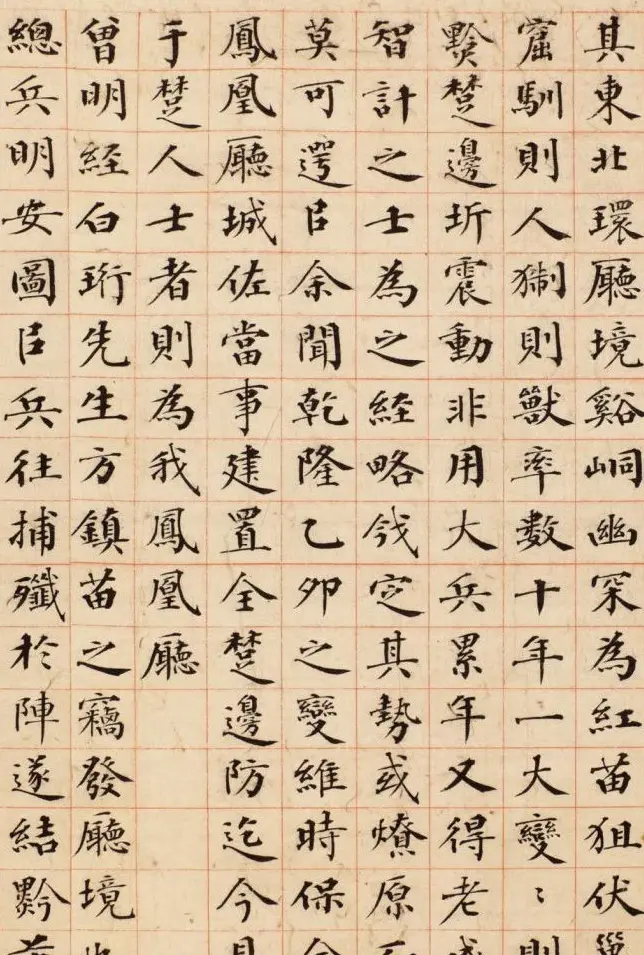 其東北環廳境谿峒幽罙為紅苗狙伏巢
窟馴則人猘則獸率數十年一大變〻則
黔楚邊圻震動非用大兵累年又得老成
智計之士為之經略定其勢或燎原
莫可遌㠯余聞乾隆乙卯之變維時保全
鳳凰廳城佐當事建置全楚邊防迄今
于楚人士者則為我鳳凰廳
曾明經白珩先生方鎮苗之竊發廳境也
總兵明安圖㠯兵往捕殲於陣遂結黔